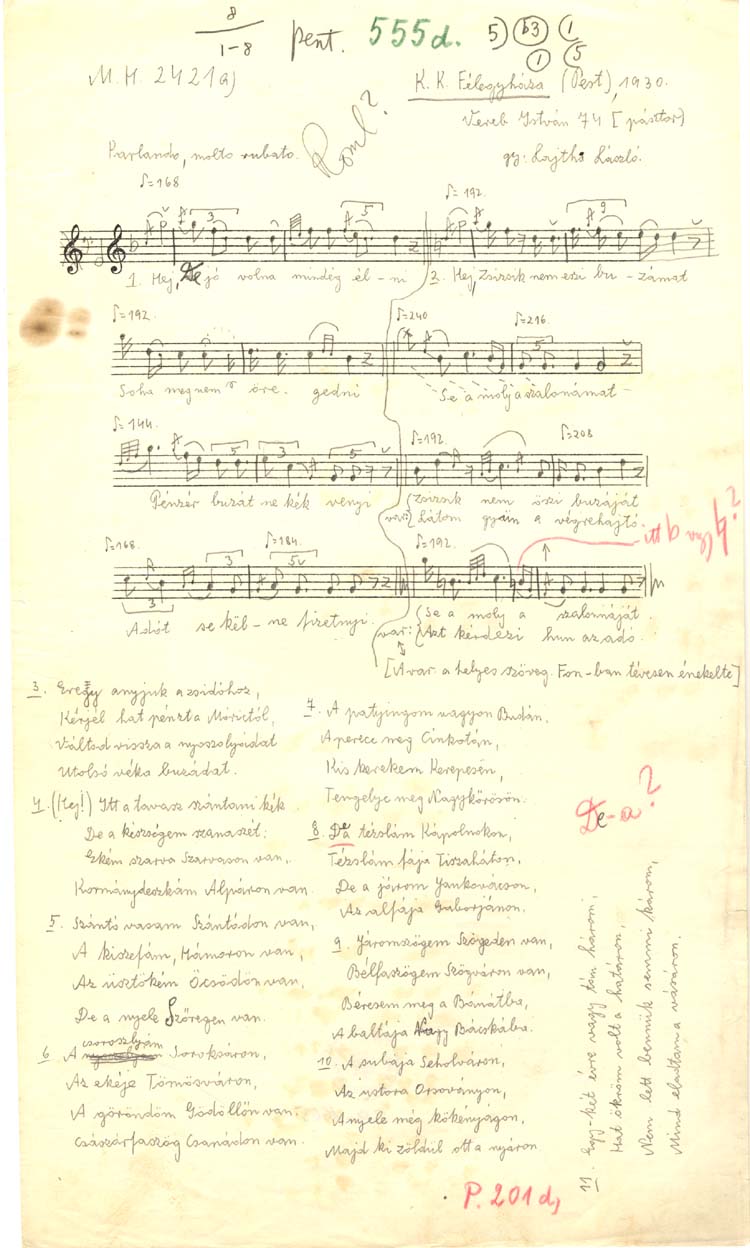 8
1-8
pent. 555d. 5) (b3) (1
(1 (5
M.H. 2421a)
K. K. Félegyháza (Pest), 1930.
Vereb István 74 [pásztor)
Parlando, molto rubato.
gy: Lajtha László.
♪=168
♪=192.
3
5
9
1. Hej, De jó volna mindég él-ni 2. Hej, Zsizsik nem eszi bu-zámat
♪=192.
♪=240.
♪=216.
5
Soha meg nem öre. gedni
Se a moly a szalonámat
♪=144.
♪=192.
♪=208
5
3
5
Pénzér buzát ne kék venyi
(Zsizsik nem öszi buzáját
var: (Látom gyün a végrehajtó.
♪=168.
♪=184.
♪=192.
3
3
5
Adót se këll-ne fizetnyi.
(Se a moly a szalonnáját.
var: (Azt kérdezi hun az adó.
[A var. a helyes szöveg. Fon-ban tévesen énekelte]
4?
3. Eregy anyjuk a zsidóhoz,
Kérjél hat pénzt a Mórictól,
Váltsd vissza a nyoszolyóidat
Utolsó véka buzádat.
4. (Hej!) Itt a tavasz szántani kék
De a készségem szanaszét:
Ekém szarva Szarvason van,
Kormánydeszkám Alpáron van.
5. Szántó vasam Szántódon van,
A kiszefám, Hámoron van,
Az üsztökém Öcsödön van,
De a nyele Szöregen van.
csoroszlyám
6. A Soroksáron,
Az ekéje Tömösváron,
A göröndöm Gödöllőn van.
Császárfaszög Csanádon van.
7. A patyingom vagyon Budán,
A perece meg Cinkotán,
Kis kerekem Kerepesën,
Tengelye meg Nagykőrösön.
8. De a tézslám Kápolnokon,
Tézslám fája Tiszaháton,
De a járom Jankovácson,
Az alfája Gaborjánon.
De-a?
9. Járomszögem Szögeden van,
Bélfaszögem Szögváron van,
Béresem meg a Bánátba,
A baltája Nagy Bácskába.
10. A subája Seholváron,
Az ustora Orsoványon,
A nyele még kökényágon,
Majd ki zöldül ott a nyáron
11. Egy-két évre vagy tán három,
Hat ökröm volt a határon,
Nem lett bennük semmi károm,
Mind eladtam a vásáron.
P. 201d,